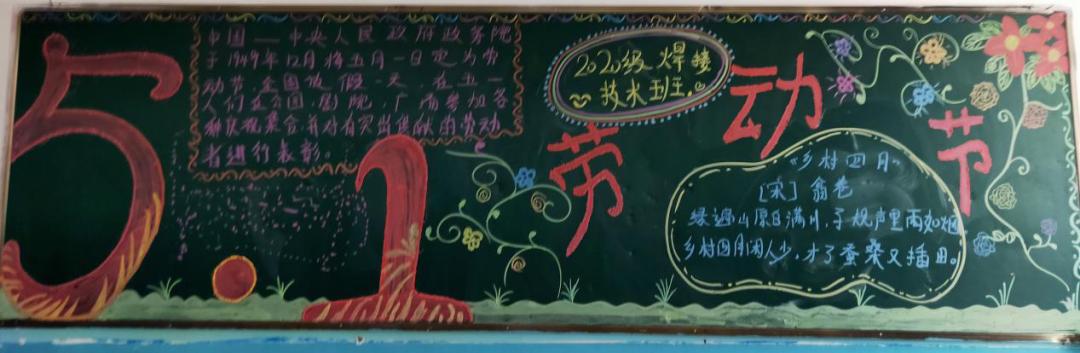 5.1
中国——中央人民政府政务院
于1949年12月将五月一日定为劳
动节，全国放假一天，在五一
人们在公园，剧院，广场参加各
种庆祝集会，并对有突出贡献的劳动
者进行表彰。
2020级焊接
技术班
劳动节
《乡村四月》
[宋] 翁卷
绿遍山原白满川，子规声里雨如烟
乡村四月闲人少，才了蚕桑又插田。